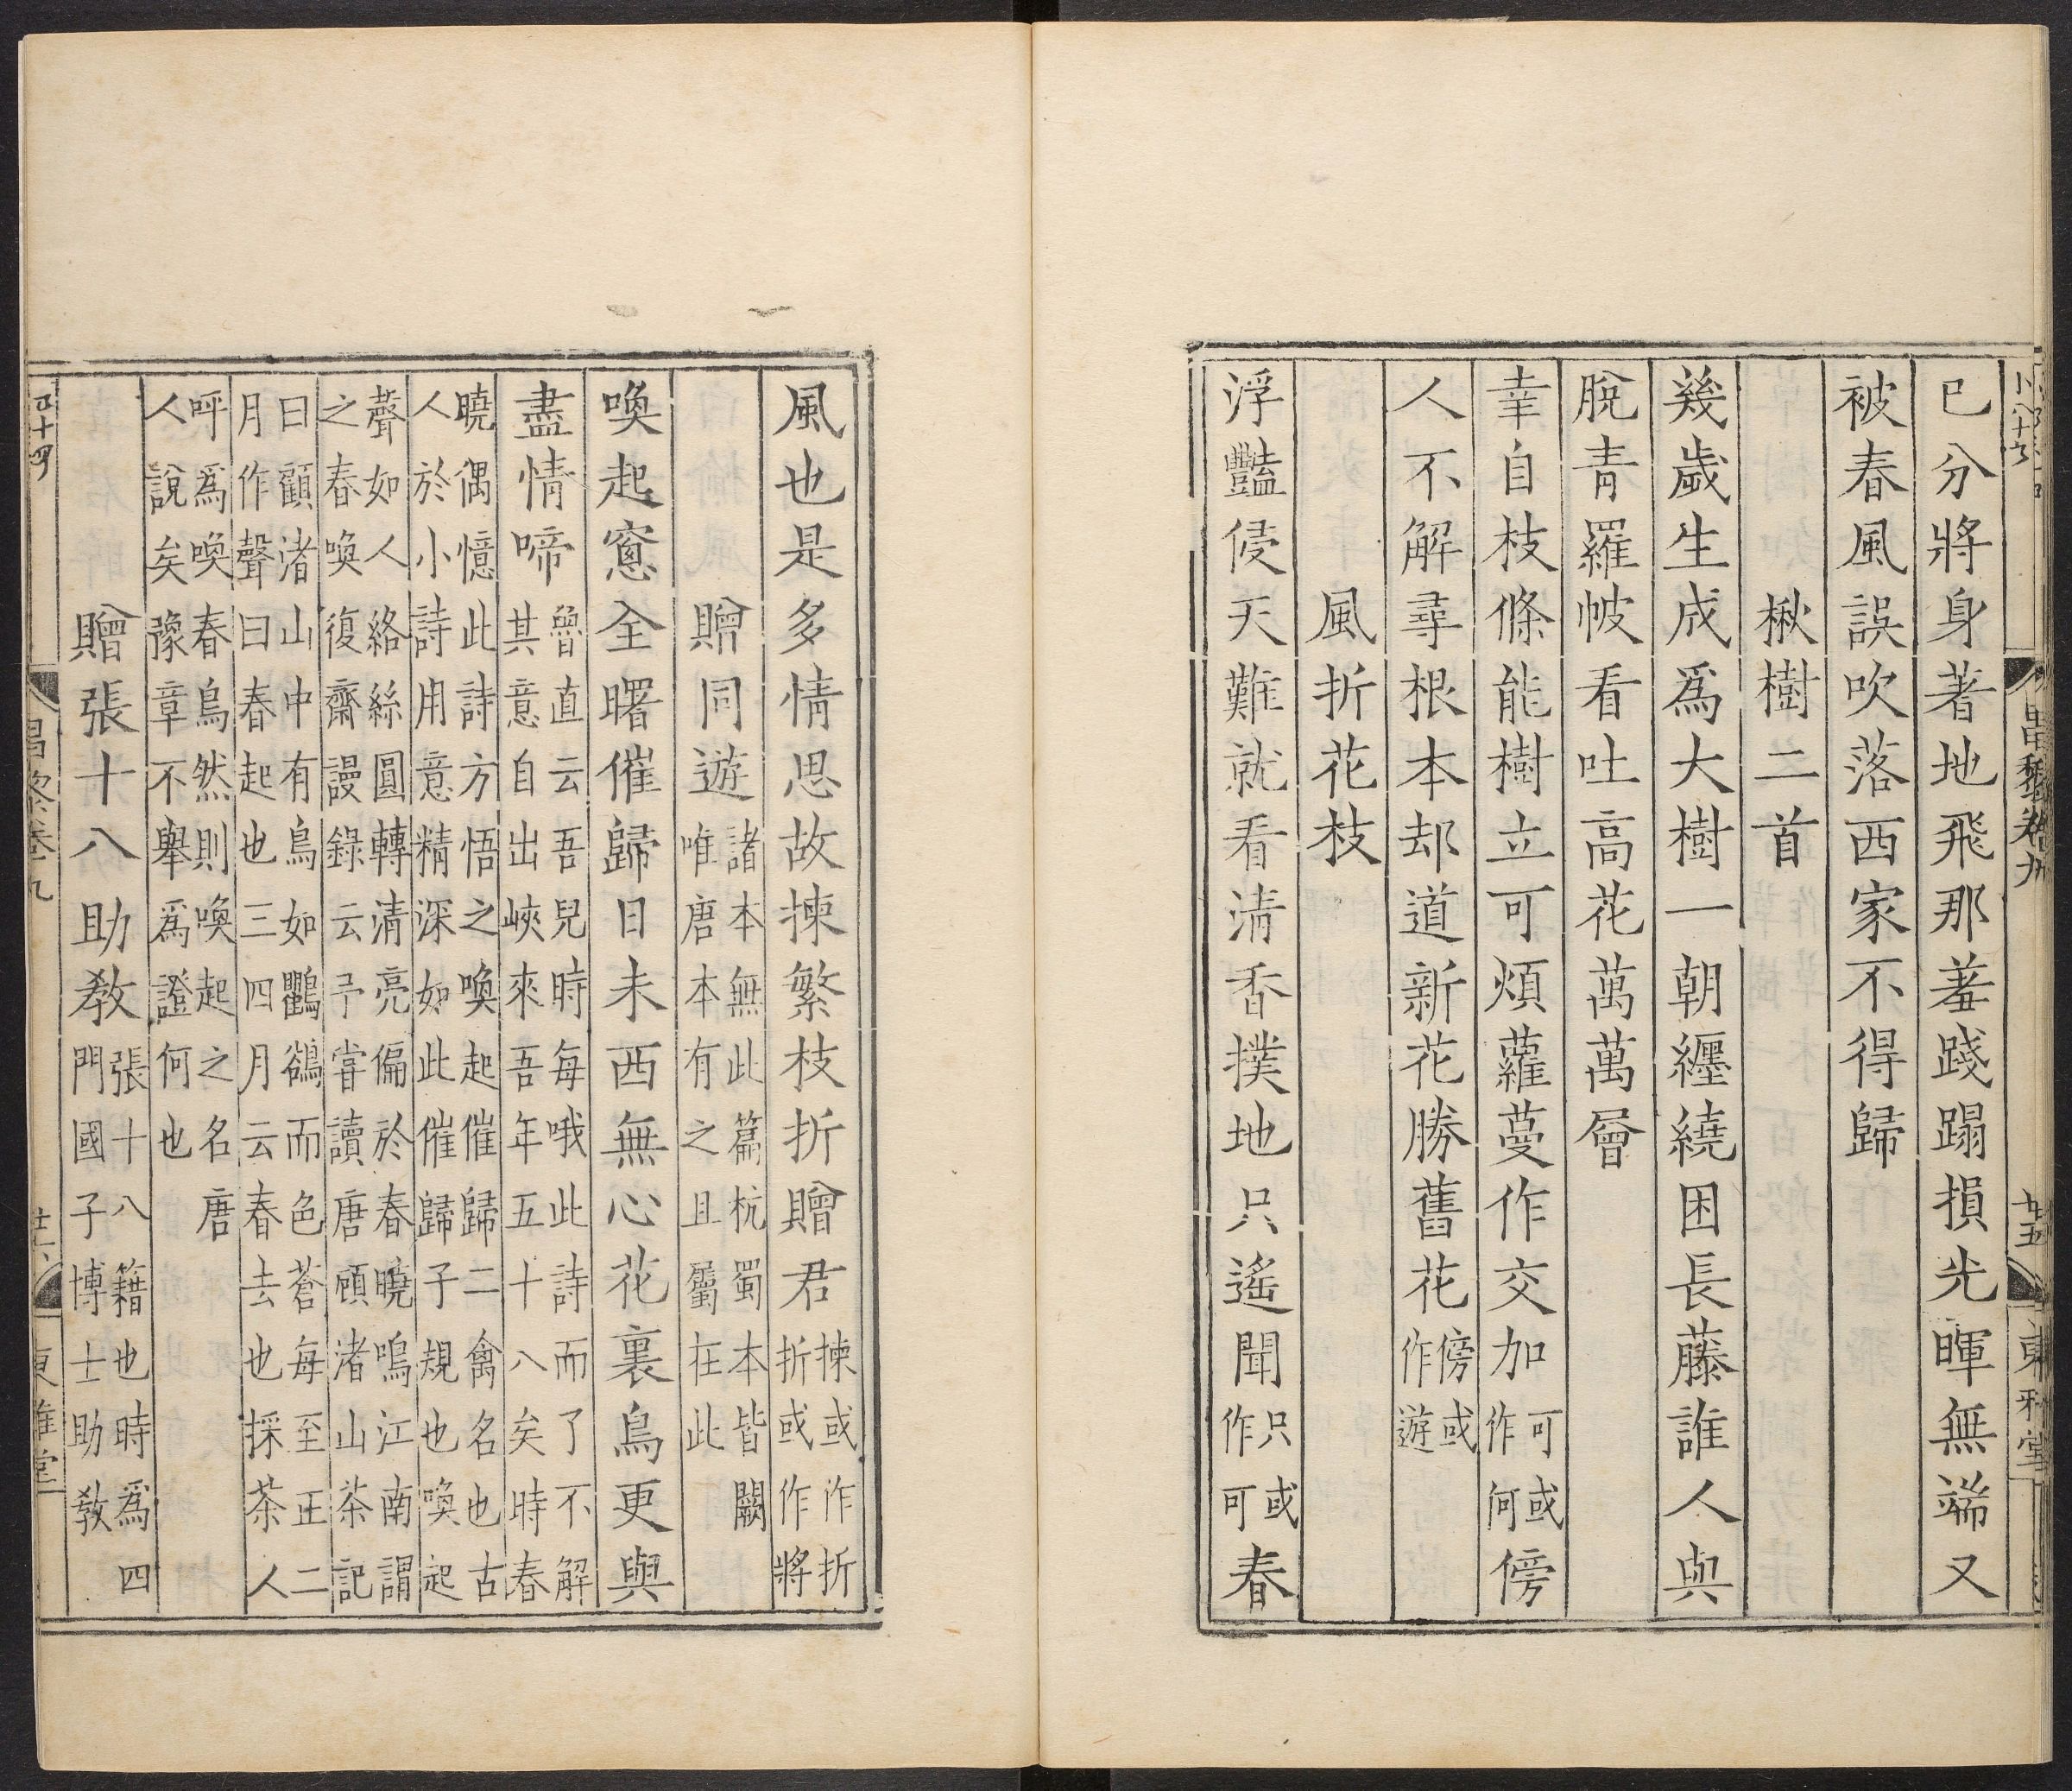 已分將身著地飛那羞踐蹋損光暉無端又
被春風誤吹落西家不得歸
楸樹二首
幾歲生成爲大樹一朝纒繞困長藤誰人與
脫青羅帔看吐高花萬萬層
幸自枝條能樹立可煩蘿蔓作交加可或作何傍
人不解尋根本却道新花勝舊花傍或作遊
風折花枝
浮豔侵天難就看清香撲地只遙聞只或作可春
風也是多情思故揀繁枝折贈君揀或作折折或作將
贈同遊諸本無此篇杭蜀本皆闕唯唐本有之且屬在此
喚起窻全曙催歸日未西無心花裏鳥更與
盡情啼魯直云吾兒時每哦此詩而了不解其意自出峽來吾年五十八矣時春
曉偶憶此詩方悟之喚起催歸二禽名也古人於小詩用意精深如此催歸子規也喚起
聲如人絡絲圓轉清亮偏於春曉鳴江南謂之春喚復齋謾錄云予嘗讀唐顧渚山茶記
曰顧渚山中有鳥如鸜鵒而色蒼每至正二月作聲曰春起也三四月云春去也採茶人
呼爲喚春鳥然則喚起之名唐人說矣豫章不舉爲證何也
贈張十八助教張十八籍也時爲四門國子博士助敎
昌黎卷九
廿五
東雅堂
昌黎卷九
廿六
東雅堂